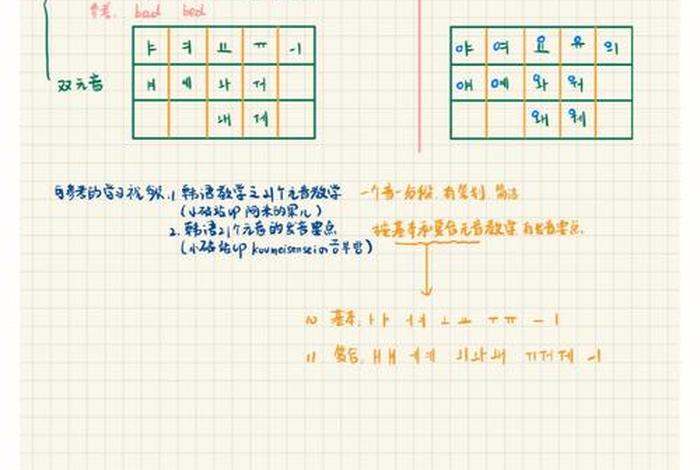 参考. bad bed
双元音
ㅑ ㅕ ㅛ ㅠ ㅢ
ㅒ ㅖ ㅘ ㅝ
ㅙ ㅞ
야 여 요 유 의
얘 예 와 워
왜 웨
自参考的学习视频. 1. 韩语教学之21个元音教学 一个音一分段, 有笔划, 简洁
(小破站up 阿木的果儿)
2. 韩语21个元音的发音要点 按基本和复合元音教学 有发音要点.
(小破站up koumeisenseiの古早营)
10 基本. ㅏㅑ ㅓㅕ ㅗㅛ ㅜㅠ ㅡㅣ
11 复合. ㅐㅒ ㅔㅖ ㅚㅘㅙ ㅟㅝㅞ ㅢ